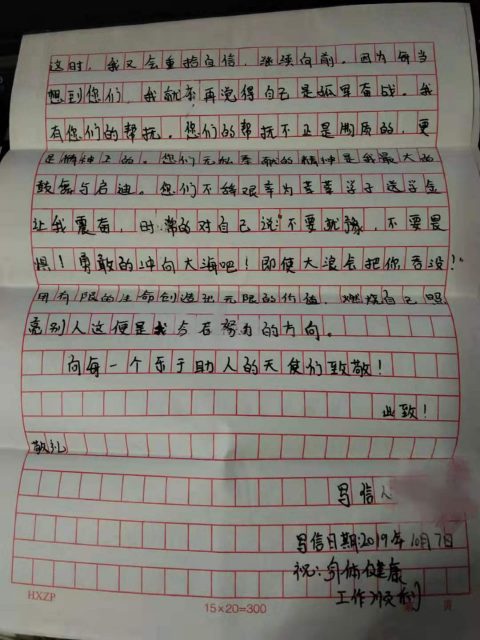 这时，我又会重拾自信，继续向前。因为每当
想到您们，我就不再觉得自己是孤军奋战。我
有您们的帮扶。您们的帮扶不止是物质的，更
是精神上的。您们无私奉献的精神是我最大的
鼓舞与启迪。您们不辞艰辛为莘莘学子送学金
让我震奋，时常的对自己说：不要犹豫，不要畏
惧！勇敢的冲向大海吧！即使大浪会把你吞没！”
用有限的生命创造出无限的价值，燃烧自己照
亮别人这便是我今后努力的方向。
向每一个乐于助人的天使们致敬！
此致！
敬礼
写信人
写信日期:2019年10月7日
祝：身体健康
工作顺利
HXZP
15×20=300
页